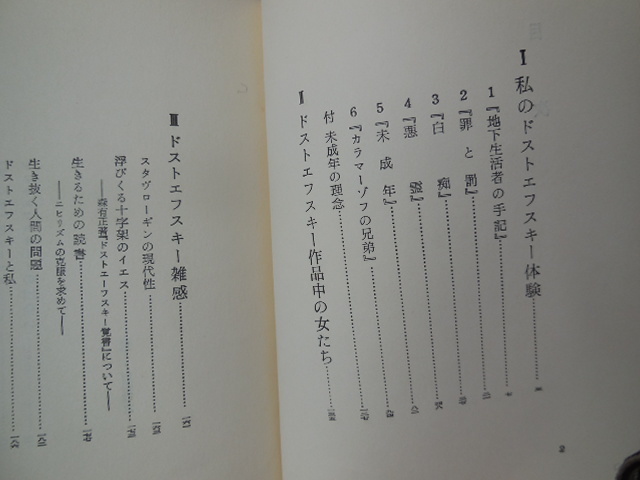 I 私のドストエフスキー体験
1『地下生活者の手記』
2『罪と罰』
3『白痴』
4『悪霊』
5『未成年』
6『カラマーゾフの兄弟』
付 未成年の理念
II ドストエフスキー作品中の女たち
2
III ドストエフスキー雑感
スタヴローギンの現代性
浮びくる十字架のイエス
——森有正著『ドストエーフスキー覚書』について——
生きるための読書
——ニヒリズムの克服を求めて——
生き抜く人間の問題
ドストエフスキーと私